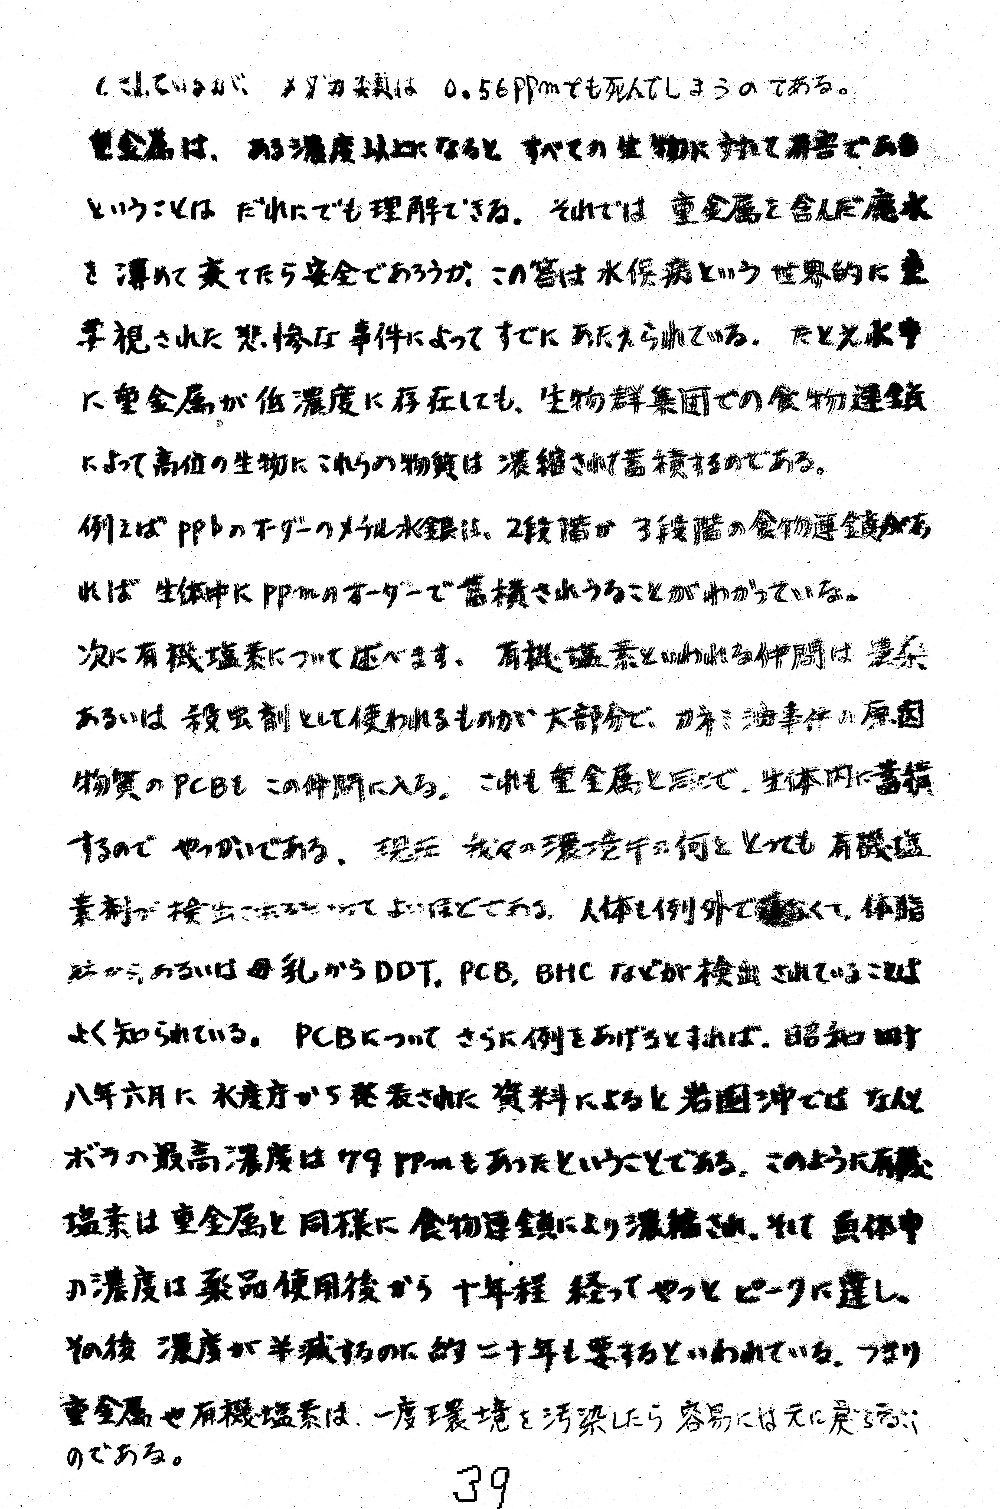 しているが、メダカ類は 0.56ppmでも死んでしまうのである。
重金属は、ある濃度以上になると すべての生物に対して有害である
ということは だれにでも理解できる。それでは 重金属を含んだ廃水
を 薄めて棄てたら安全であろうか。この答は水俣病という世界的に重
要視された悲惨な事件によってすでにあたえられている。たとえ水中
に重金属が低濃度に存在しても、生物群集団での食物連鎖
によって高位の生物にこれらの物質は 濃縮されて蓄積するのである。
例えばppbのオーダーのメチル水銀は、2段階か3段階の食物連鎖があ
れば 生体中にppmのオーダーで蓄積されうることがわかっている。
次に有機塩素について述べます。有機塩素といわれる仲間は 農薬
あるいは 殺虫剤として使われるものが大部分で、カネミ油事件の原因
物質のPCBも この仲間に入る。これも重金属と同じで、生体内に蓄積
するので やっかいである。現在 我々の環境中の何をとっても 有機塩
素剤が検出されるといってよいほどである。人体も例外で なくて、体脂
肪から、あるいは母乳からDDT, PCB, BHCなどが検出されていることは
よく知られている。PCBについて さらに例をあげるとすれば、昭和四十
八年六月に 水産庁から発表された 資料によると岩国沖では なんと
ボラの最高濃度は79ppmもあったということである。このように有機
塩素は重金属と同様に食物連鎖により濃縮され、そして 魚体中
の濃度は薬品使用後から 十年程 経ってやっとピークに達し、
その後 濃度が半減するのに約二十年も要するといわれている。つまり
重金属や有機塩素は、一度環境を汚染したら容易には元に戻らない
のである。
39